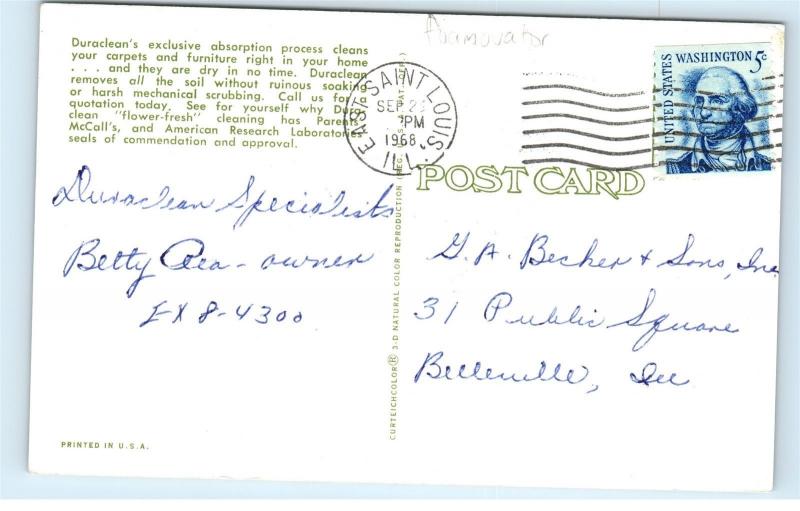 Duraclean's exclusive absorption process cleans
your carpets and furniture right in your home
. . . and they are dry in no time. Duraclean
removes all the soil without ruinous soaking
or harsh mechanical scrubbing. Call us for a
quotation today. See for yourself why Dura-
clean "flower-fresh" cleaning has Parents'
McCall's, and American Research Laboratories
seals of commendation and approval.
EAST SAINT LOUIS
SEP 2
PM
1968
ILL.
UNITED STATES
WASHINGTON 5c
POST CARD
Duraclean Specialists
Betty Rea - owner
EX 8-4300
G. A. Becher & Sons, Inc
31 Public Square
Belleville, Ill
CURTEICHCOLOR® 3-D NATURAL COLOR REPRODUCTION (REG. U.S. PAT. OFF.)
PRINTED IN U.S.A.